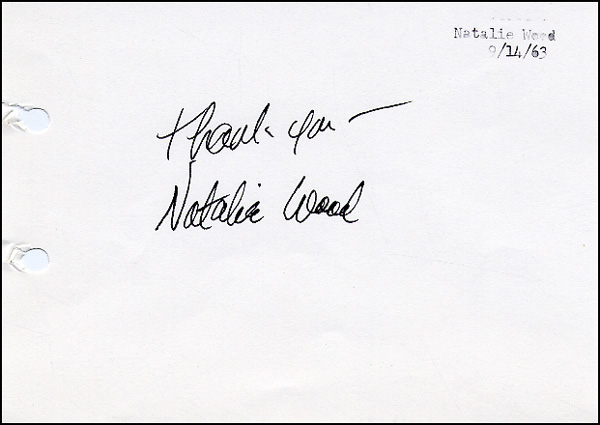 Natalie Wood
9/14/63
Thank you —
Natalie Wood